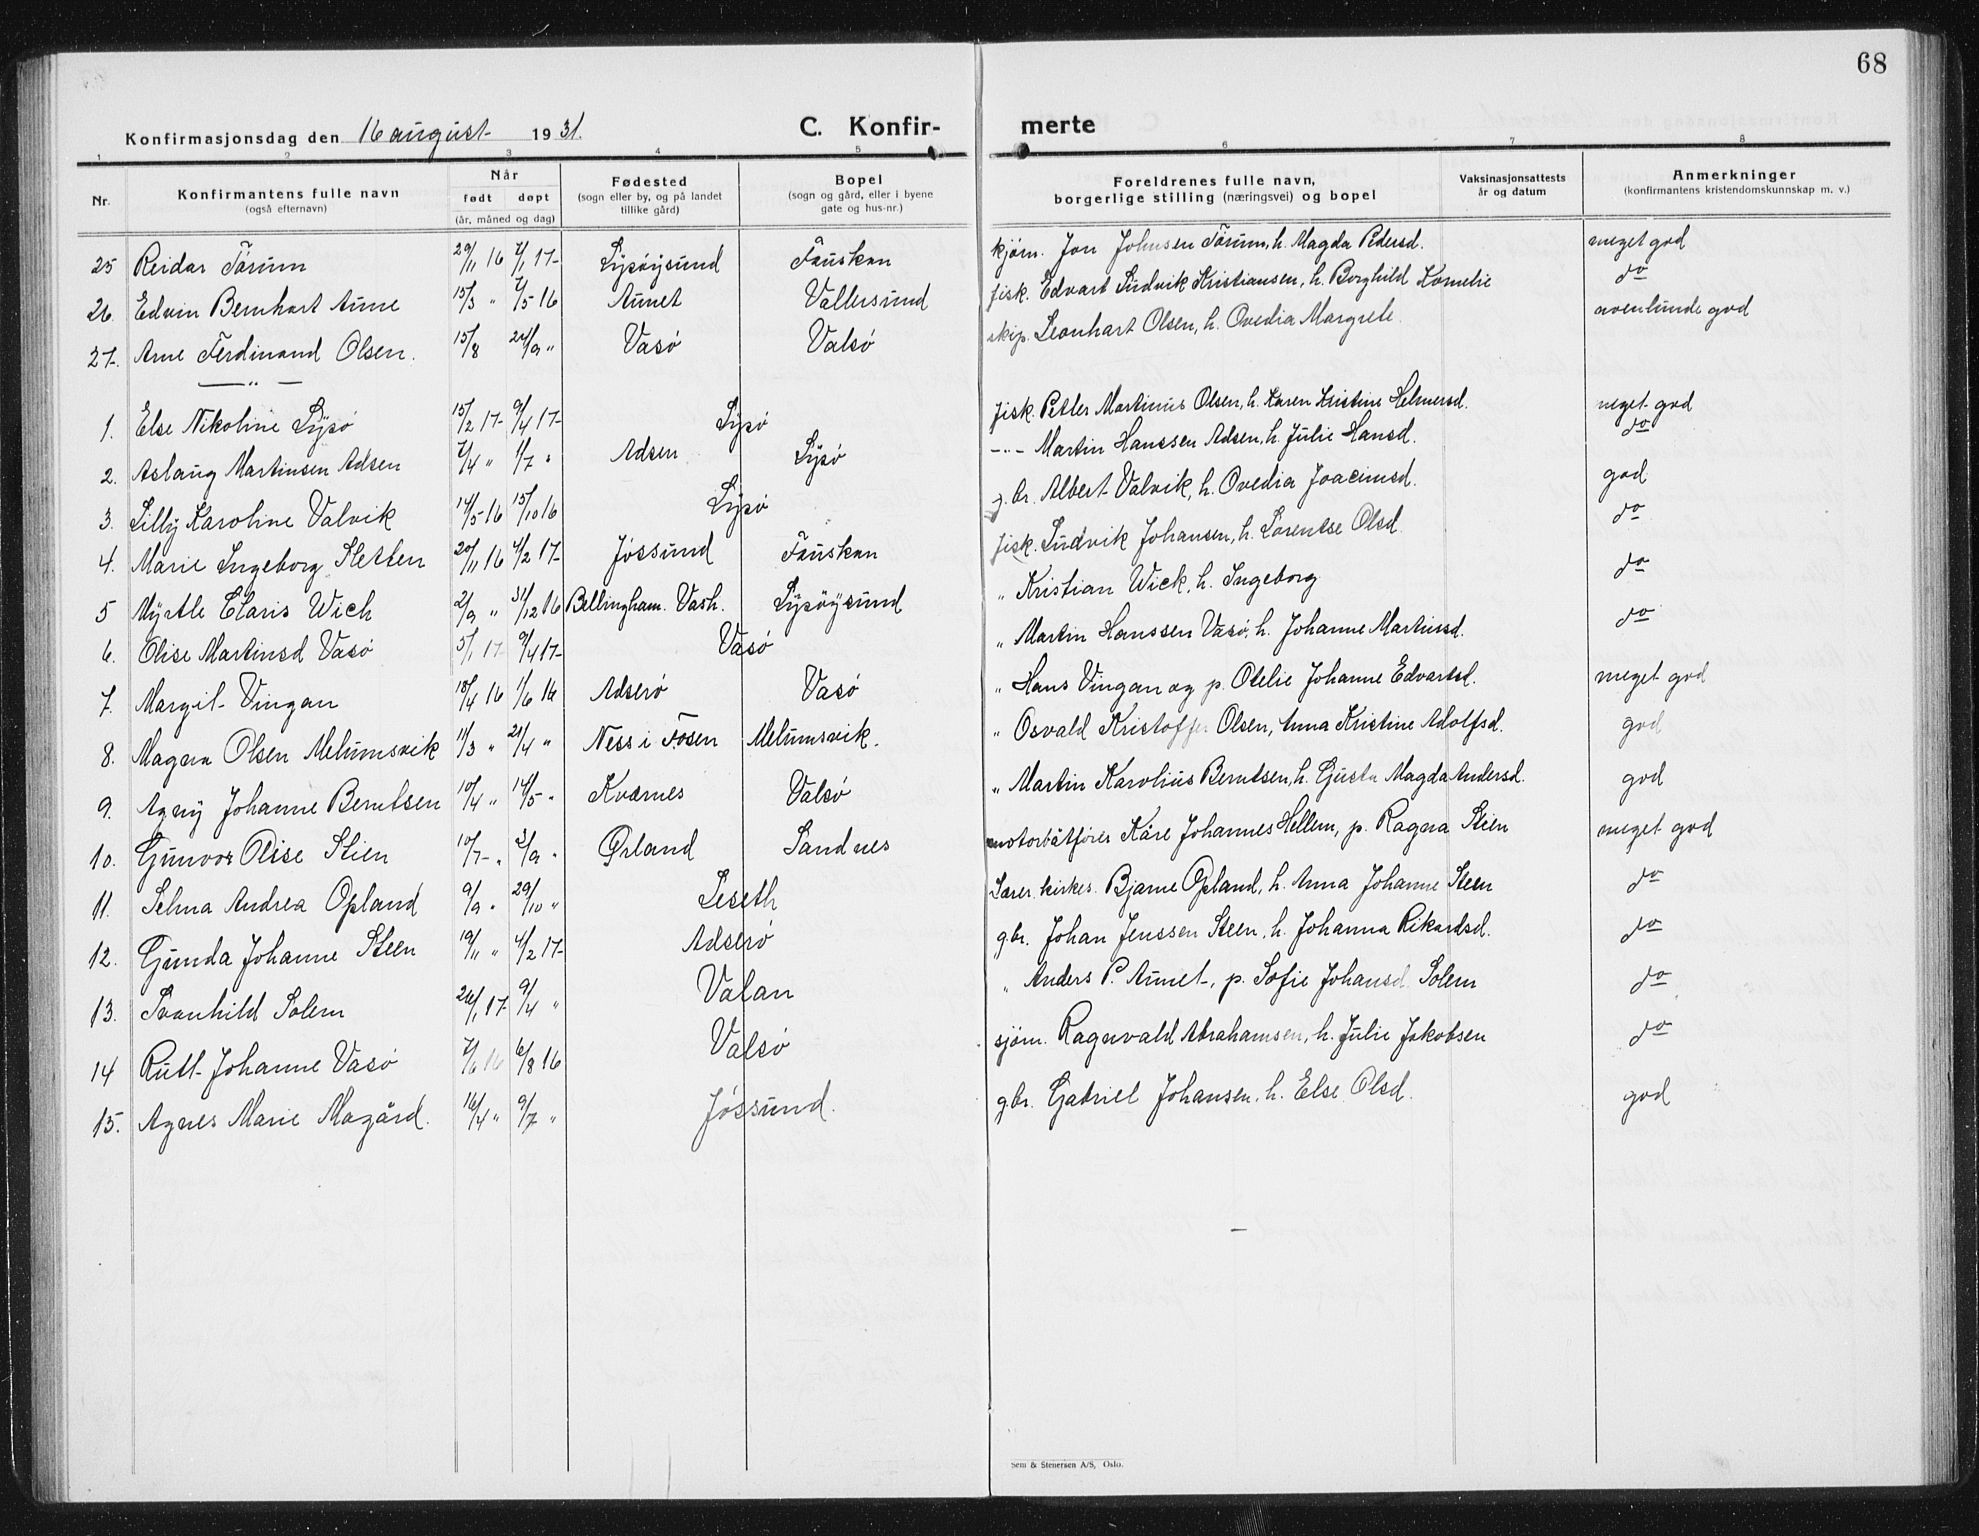 68
Konfirmasjonsdag den 16 august 1931. C. Konfir- merte
1 2 3 4 5 6 7 8
Nr. Konfirmantens fulle navn (også efternavn) Når født døpt (år, måned og dag) Fødested (sogn eller by, og på landet tillike gård) Bopel (sogn og gård, eller i byene gate og hus-nr.) Foreldrenes fulle navn, borgerlige stilling (næringsvei) og bopel Vaksinasjonsattests år og datum Anmerkninger (konfirmantens kristendomskunnskap m. v.)
25 Reidar Tørum 29/11 16 7/1 17 Lysøysund Fauskan kjøm. Jon Johnsen Tørum, h. Magda Pedersd. meget god
26. Edvin Bernhart Aune 15/3 " 7/5 16 Aunet Vallersund fisk. Edvart Ludvik Kristiansen, h. Borghild Kornelie do
27. Arne Ferdinand Olsen. 15/8 24/9 " Vasø Valsø skip. Leonhart Olsen, h. Ovedia Margrete. noenlunde god
— " —
1. Else Nikoline Lysø 15/2 17 9/4 17 Lysø fisk. Petter Martinus Olsen, h. Karen Kristine Helmersd. meget god
2. Aslaug Martinsen Adsen 7/4 " 1/7 " Adsen Lysø - " - Martin Hanssen Adsen, h. Julie Hansd. do
3. Lilly Karoline Valvik 14/5 16 15/10 16 Lysø g.br. Albert Valvik, h. Ovedia Joacimsd. god
4. Marie Ingeborg Sletten 20/11 16 4/2 17 Jøssund Fauskan fisk. Ludvik Johansen, h. Lorentse Olsd. do
5 Myrtle Claris Wich 2/9 " 31/12 16 Bellingham. Vash. Lysøysund " Kristian Wick, h. Ingeborg do
6. Olise Martinsd Vasø 5/1 17 9/4 17 Vasø " Martin Hanssen Vasø, h. Johanne Martinsd. do
7. Margit Vingan 18/4 16 1/6 16 Adserø Vasø " Hans Vingan og p. Otelie Johanne Edvartsd. meget god
8. Magna Olsen Melumsvik 11/3 " 21/4 " Ness i Fosen Melumsvik. " Osvald Kristoffer Olsen, Anna Kristine Adolfsd. god
9. Agny Johanne Berntsen 10/4 " 14/5 " Kvernes Valsø " Martin Karolius Berntsen, h. Gusta Magda Andersd. god
10. Gunvor Olise Stien 10/7 " 3/9 " Ørland Sandnes motorbåtfører Kåre Johannes Hellem, p. Ragna Stien meget god
11. Selma Andrea Opland 9/9 " 29/10 " Leseth Lærer kirkes. Bjarne Opland, h. Anna Johanne Steen do
12. Gunda Johanne Steen 19/11 " 4/2 17 Adserø g.br. Johan Jenssen Steen, h. Johanna Rikardsd. do
13. Svanhild Solem 26/1 17 9/4 " Valan " Anders P. Aunet, p. Sofie Johansd. Solem do
14 Rutt Johanne Vasø 7/6 16 6/8 16 Valsø sjøm. Ragnvald Abrahamsen, h. Julie Jakobsen do
15. Agnes Marie Magård. 16/4 " 9/7 " Jøssund. g.br. Gabriel Johansen, h. Else Olsd. god
Sem & Stenersen A/S, Oslo.